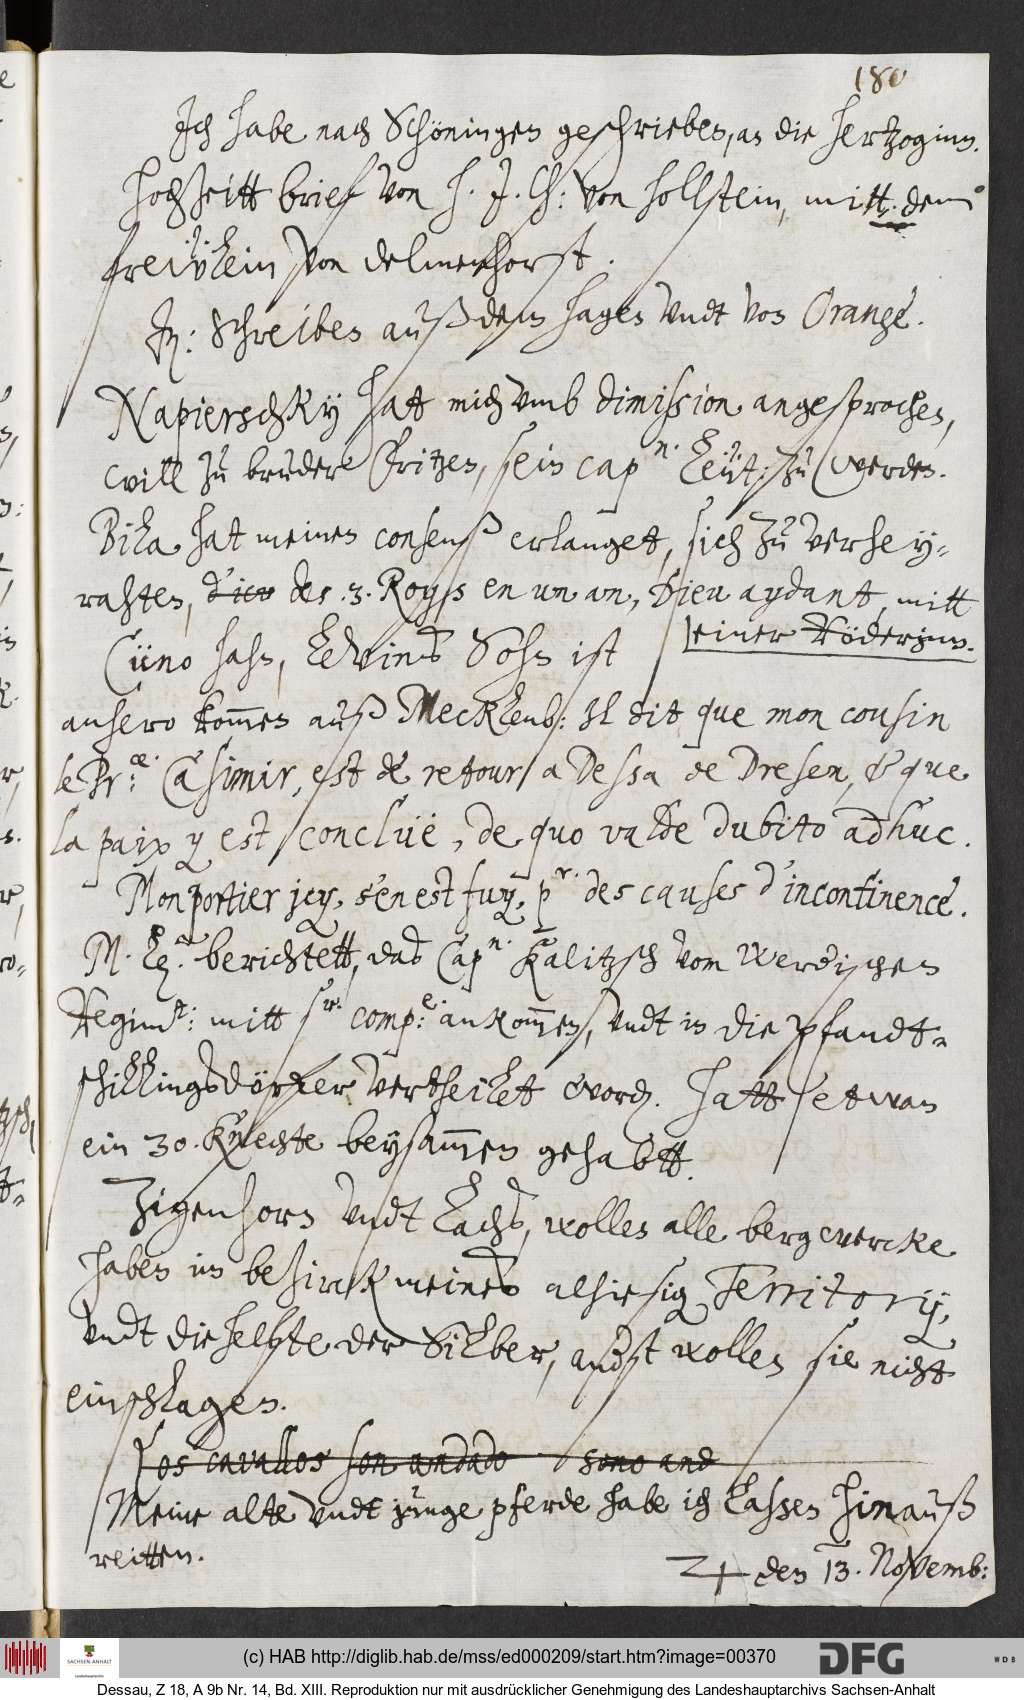 180
Ich habe nach Schöningen geschrieben, an die Hertzoginn.
Hochzeitt brief von H. J. Ch: von Hollstein, mitt dem
freẅlein von Delmenhorst.
It: Schreiben auß dem Hagen vndt von Orange.
Napierschkÿ hatt mich vmb dimission angesprochen,
will zu bruder Fritzen, sein cap.n Leüt: zu werden.
Bila hat meinen consenß erlanget, sich zu verhey-
rahten, d'icy des .3. Roys en un an, Dieu aydant, mitt
einer Röderinn.
Cüno Hahn, Ledwins Sohn ist
anhero kom̅en auß Mecklenb: Il dit que mon cousin
le Pr:ce. Casimir, est de retour a Dessa de Dresen, & que
la paix y est conclüe, de quo valde dubito adhuc.
Mon portier icy, s'en est fuy, pr. des causes d'incontinence.
M. Lz. berichtett, das Cap.n Kalitzsch vom Werdischen
Regimt: mitt sr. comp:e. ankom̅en, vndt in die pfandt-
schillingsdörfer vertheilet word. Hatt etwan
ein 30. Knechte beysam̅en gehabtt.
Zigenhorn vndt Lachs, wollen alle bergwercke
haben im bezirck meines alhiesig Territorij,
vndt die helfte der Silber, anderst wollen sie nicht
einschlagen.
Los cavallos son andado sono and
Meine alte vndt junge pferde habe ich lassen hinauß
reitten.
♃ den 13. Novemb:
SACHSEN-ANHALT
Landeshauptarchiv
(c) HAB http://diglib.hab.de/mss/ed000209/start.htm?image=00370
DFG
W D B
Dessau, Z 18, A 9b Nr. 14, Bd. XIII. Reproduktion nur mit ausdrücklicher Genehmigung des Landeshauptarchivs Sachsen-Anhalt